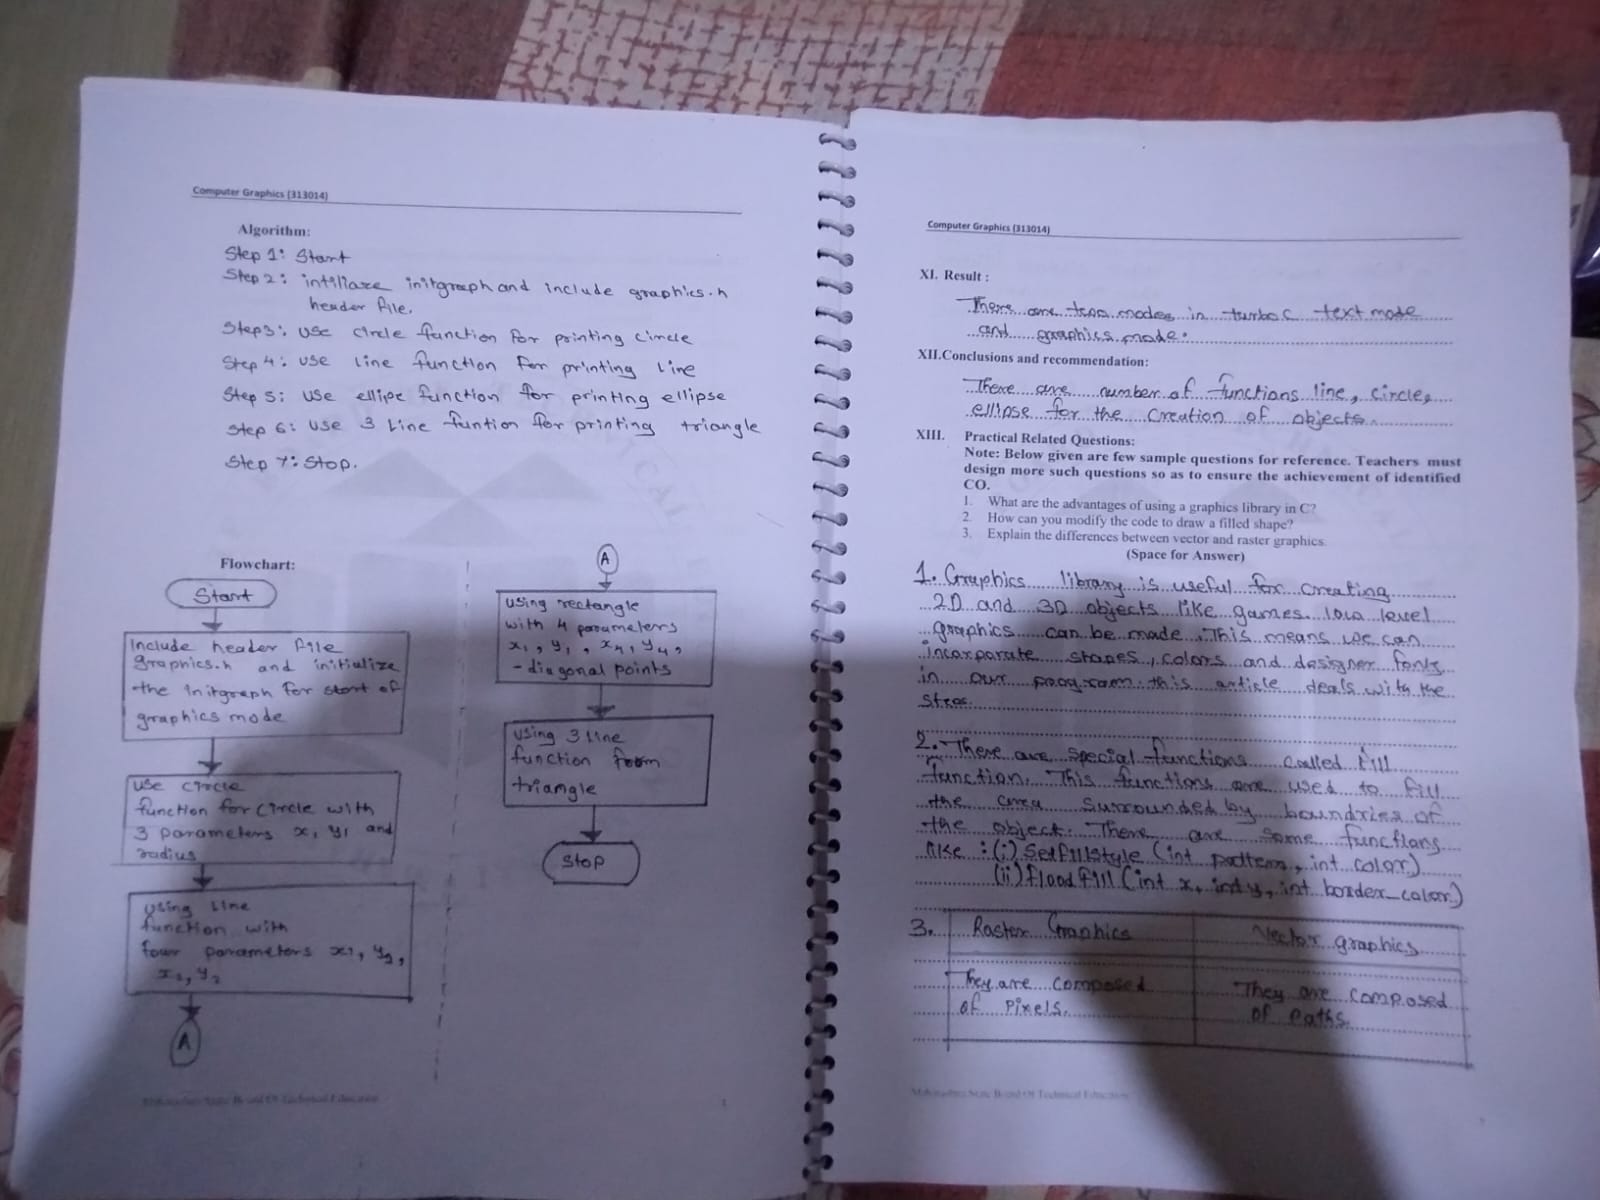 Computer Graphics (313014)
Algorithm:
Step 1: Start
Step 2: intiliaze initgraph and include graphics.h
header file.
Step3: use circle function for printing circle
Step 4: use line function for printing line
Step 5: use ellipe function for printing ellipse
Step 6: use 3 line funtion for printing triangle
Step 7: Stop.
Flowchart:
Start
Include header file
graphics.h and initialize
the initgraph for start of
graphics mode
use circle
function for circle with
3 parameters x, y, and
radius
using line
function with
four parameters x1, y2,
x2, y2
A
A
using rectangle
with 4 parameters
x1, y1, x4, y4,
- diagonal points
using 3 line
function from
triamgle
Stop
Maharashtra State Board Of Technical Education
Computer Graphics (313014)
XI. Result :
There are two modes in turbo C text mode
and graphics mode.
XII.Conclusions and recommendation:
There are number of functions line, circle,
ellipse for the creation of objects.
XIII. Practical Related Questions:
Note: Below given are few sample questions for reference. Teachers must
design more such questions so as to ensure the achievement of identified
CO.
1. What are the advantages of using a graphics library in C?
2. How can you modify the code to draw a filled shape?
3. Explain the differences between vector and raster graphics.
(Space for Answer)
1. Graphics library is useful for creating
2D and 3D objects like games. low level
graphics can be made. This means we can
incorparate shapes, colors and designer fonts
in our program. this article deals with the
2. There are special functions called fill
function. This functions are used to fill
the area surrounded by boundries of
the object. There are some functions
like : (i) Setfillstyle (int pattern, int color)
(ii) flood fill (int x, int y, int border_color)
3. Raster Graphics
Vector graphics
They are composed
of Pixels.
They are composed
of Paths.
Maharashtra State Board Of Technical Education